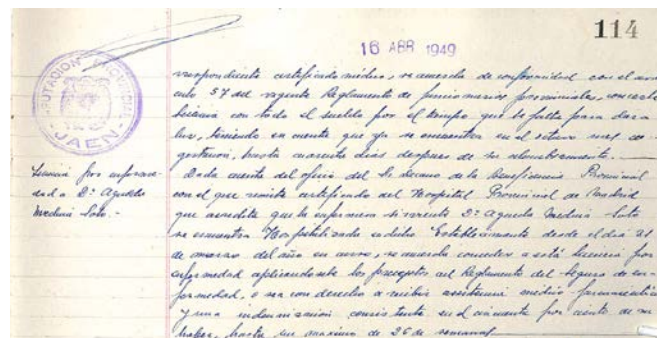 114
16 ABR 1949
DIPUTACION PROVINCIAL
JAEN
rrespondiente certificado médico, se acuerda de conformidad con el artí-
culo 57 del vigente Reglamento de funcionarios provinciales, concederle
licencia con todo el sueldo por el tiempo que le falta para dar a
luz, teniendo en cuenta que ya se encuentra en el octavo mes de
gestación, hasta cuarenta dias despues de su alumbramiento.
Licencia por enferme-
dad a Dª Agueda
Medina Soto.-
Dada cuenta del oficio del Sr Decano de la Beneficencia Provincial
con el que remite certificado del Hospital Provincial de Madrid
que acredita que la enfermera sirvienta Dª Agueda Medina Soto
se encuentra Hospitalizada en dicho Establecimiento desde el dia 21
de marzo del año en curso, se acuerda conceder a está licencia por
enfermedad aplicandosele los preceptos del Reglamento del Seguro de en-
fermedad, o sea con derecho a recibir asistencia médico farmaceútica
y una indemnizacion consistente en el cincuenta por ciento de su
haber, hasta un maximo de 26 de semanas